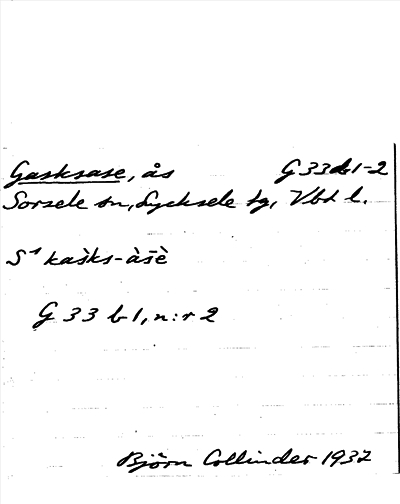 Gasksase, ås G 33 b 1-2
Sorsele sn, Lycksele tg, Vbtn l.
S¹ kašks-àšè
G 33 b 1, n:r 2
Björn Collinder 1937